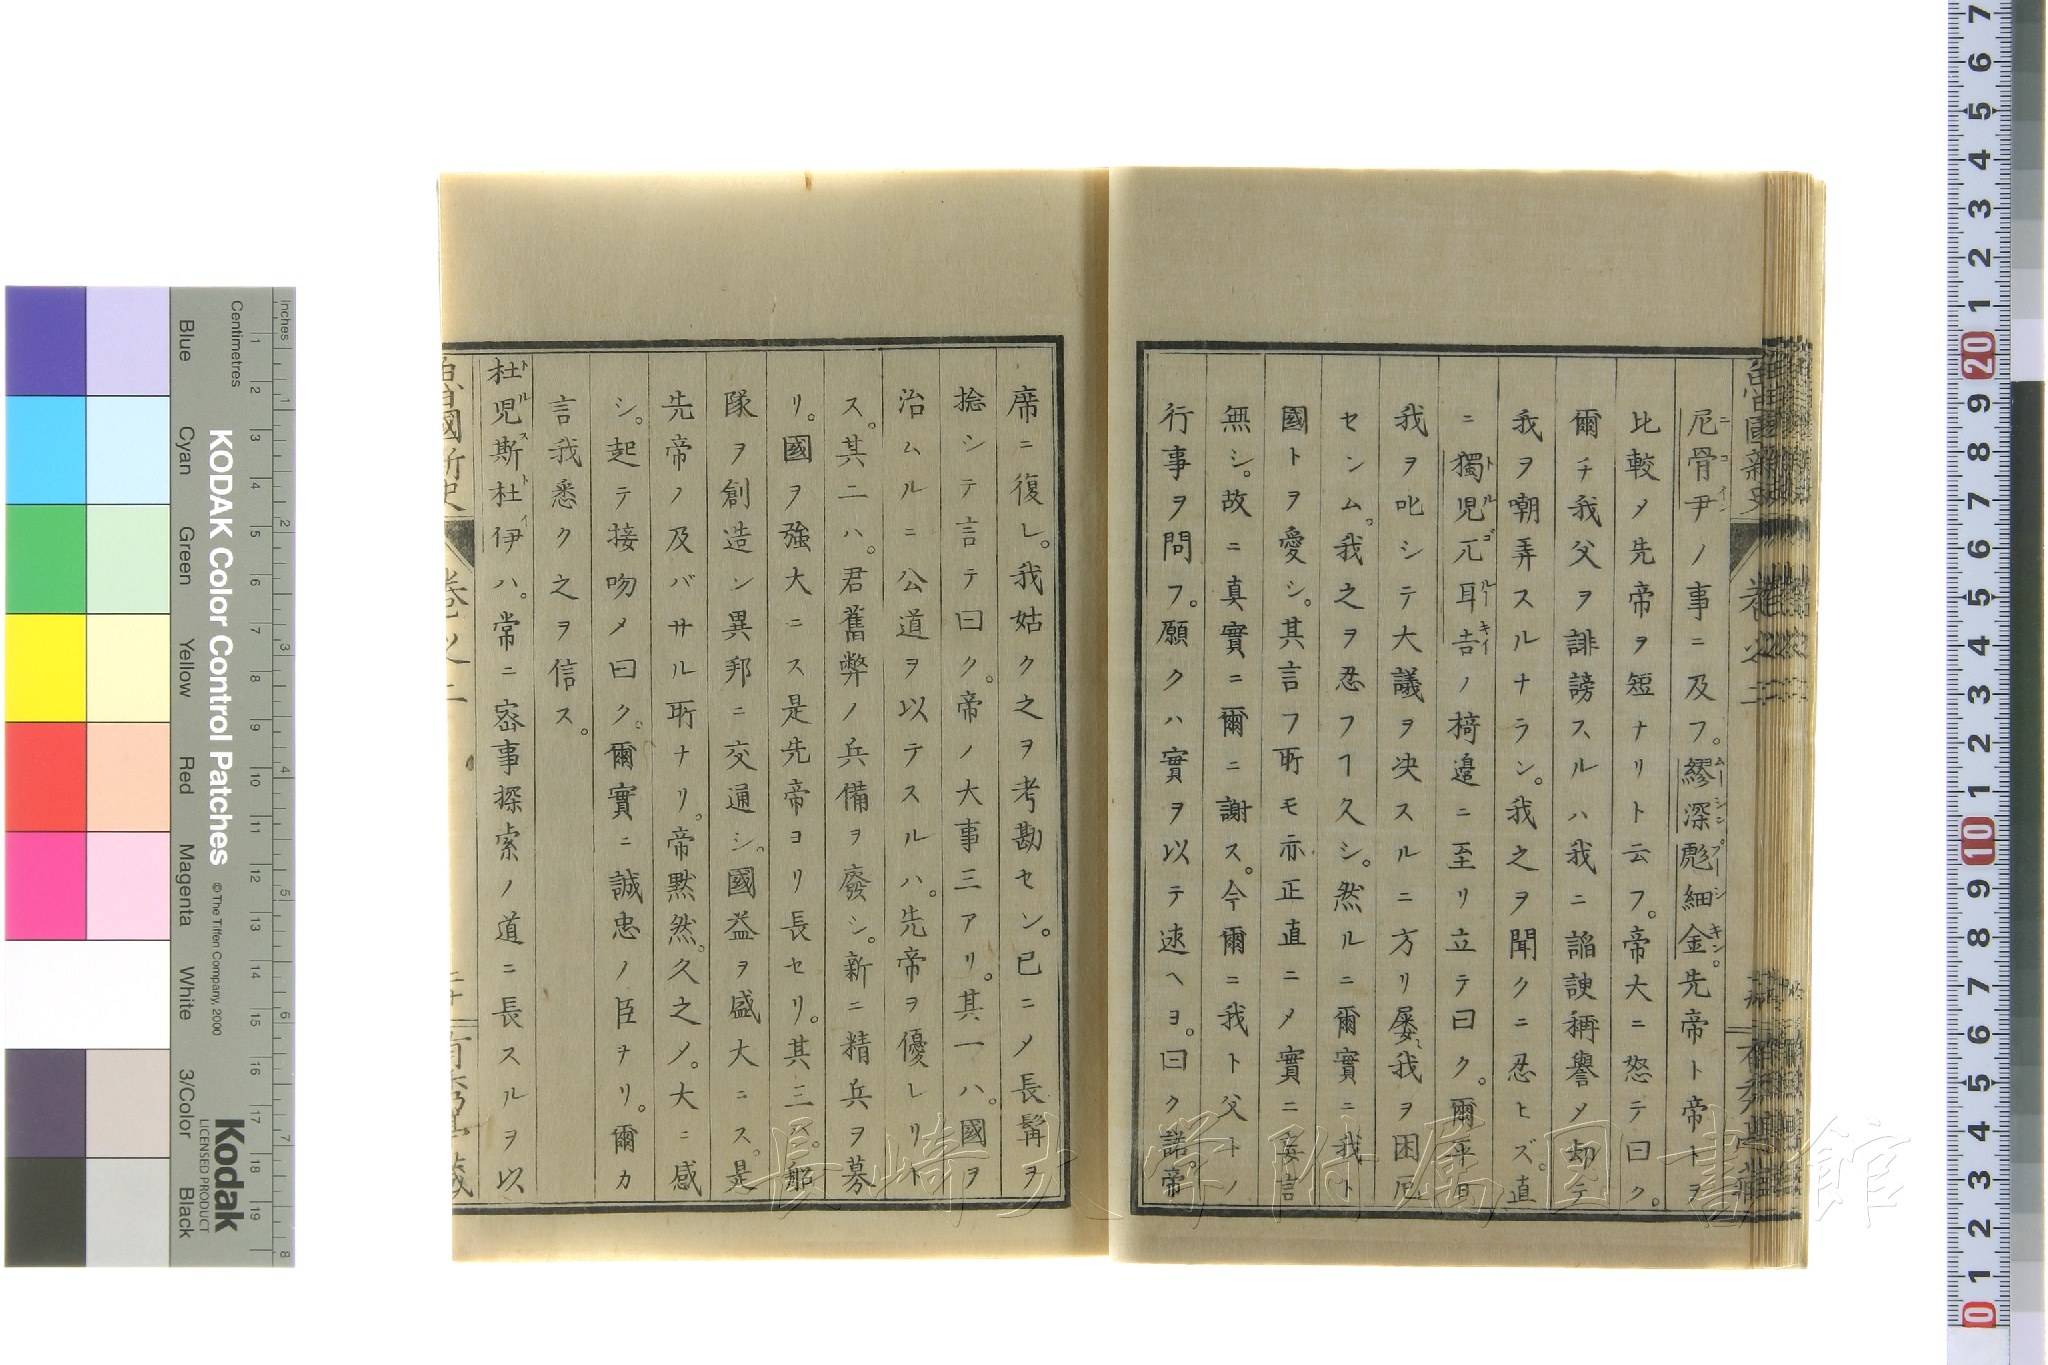 尼骨尹ノ事ニ及フ。繆深彪細金。先帝ト帝トヲ
比較メ先帝ヲ短ナリト云フ。帝大ニ怒テ曰ク。
爾チ我父ヲ誹謗スルハ我ニ謟諛稱譽メ却テ
我ヲ嘲弄スルナラン。我之ヲ聞クニ忍ヒズ。直
ニ獨兒兀耳吉ノ椅邉ニ至リ立テ曰ク。爾平日
我ヲ叱シテ大議ヲ决スルニ方リ屡〻我ヲ困厄
センム。我之ヲ忍フヿ久シ。然ルニ爾實ニ我ト
國トヲ愛シ。其言フ所モ亦正直ニメ實ニ妄言
無シ。故ニ真實ニ爾ニ謝ス。今爾ニ我ト父トノ
行事ヲ問フ。願クハ實ヲ以テ速ヘヨ。曰ク諾帝
席ニ復レ。我姑ク之ヲ考勘セン。已ニメ長髯ヲ
捻シテ言テ曰ク。帝ノ大事三アリ。其一ハ。國ヲ
治ムルニ公道ヲ以テスルハ。先帝ヲ優レリト
ス。其二ハ。君舊弊ノ兵備ヲ廢シ。新ニ精兵ヲ募
リ。國ヲ強大ニス是先帝ヨリ長セリ。其三ハ。船
隊ヲ創造ン異邦ニ交通シ。國益ヲ盛大ニス。是
先帝ノ及バサル所ナリ。帝黙然。久之ノ。大ニ感
シ。起テ接吻メ曰ク。爾實ニ誠忠ノ臣ナリ。爾カ
言我悉ク之ヲ信ス。
杜兒斯杜伊ハ。常ニ密事探索ノ道ニ長スルヲ以
國新史 卷之二
長崎大学附属図書館
KODAK Color Control Patches
© The Tiffen Company, 2000
Kodak
LICENSED PRODUCT
Inches
Centimetres
Blue
Cyan
Green
Yellow
Red
Magenta
White
3/Color
Black